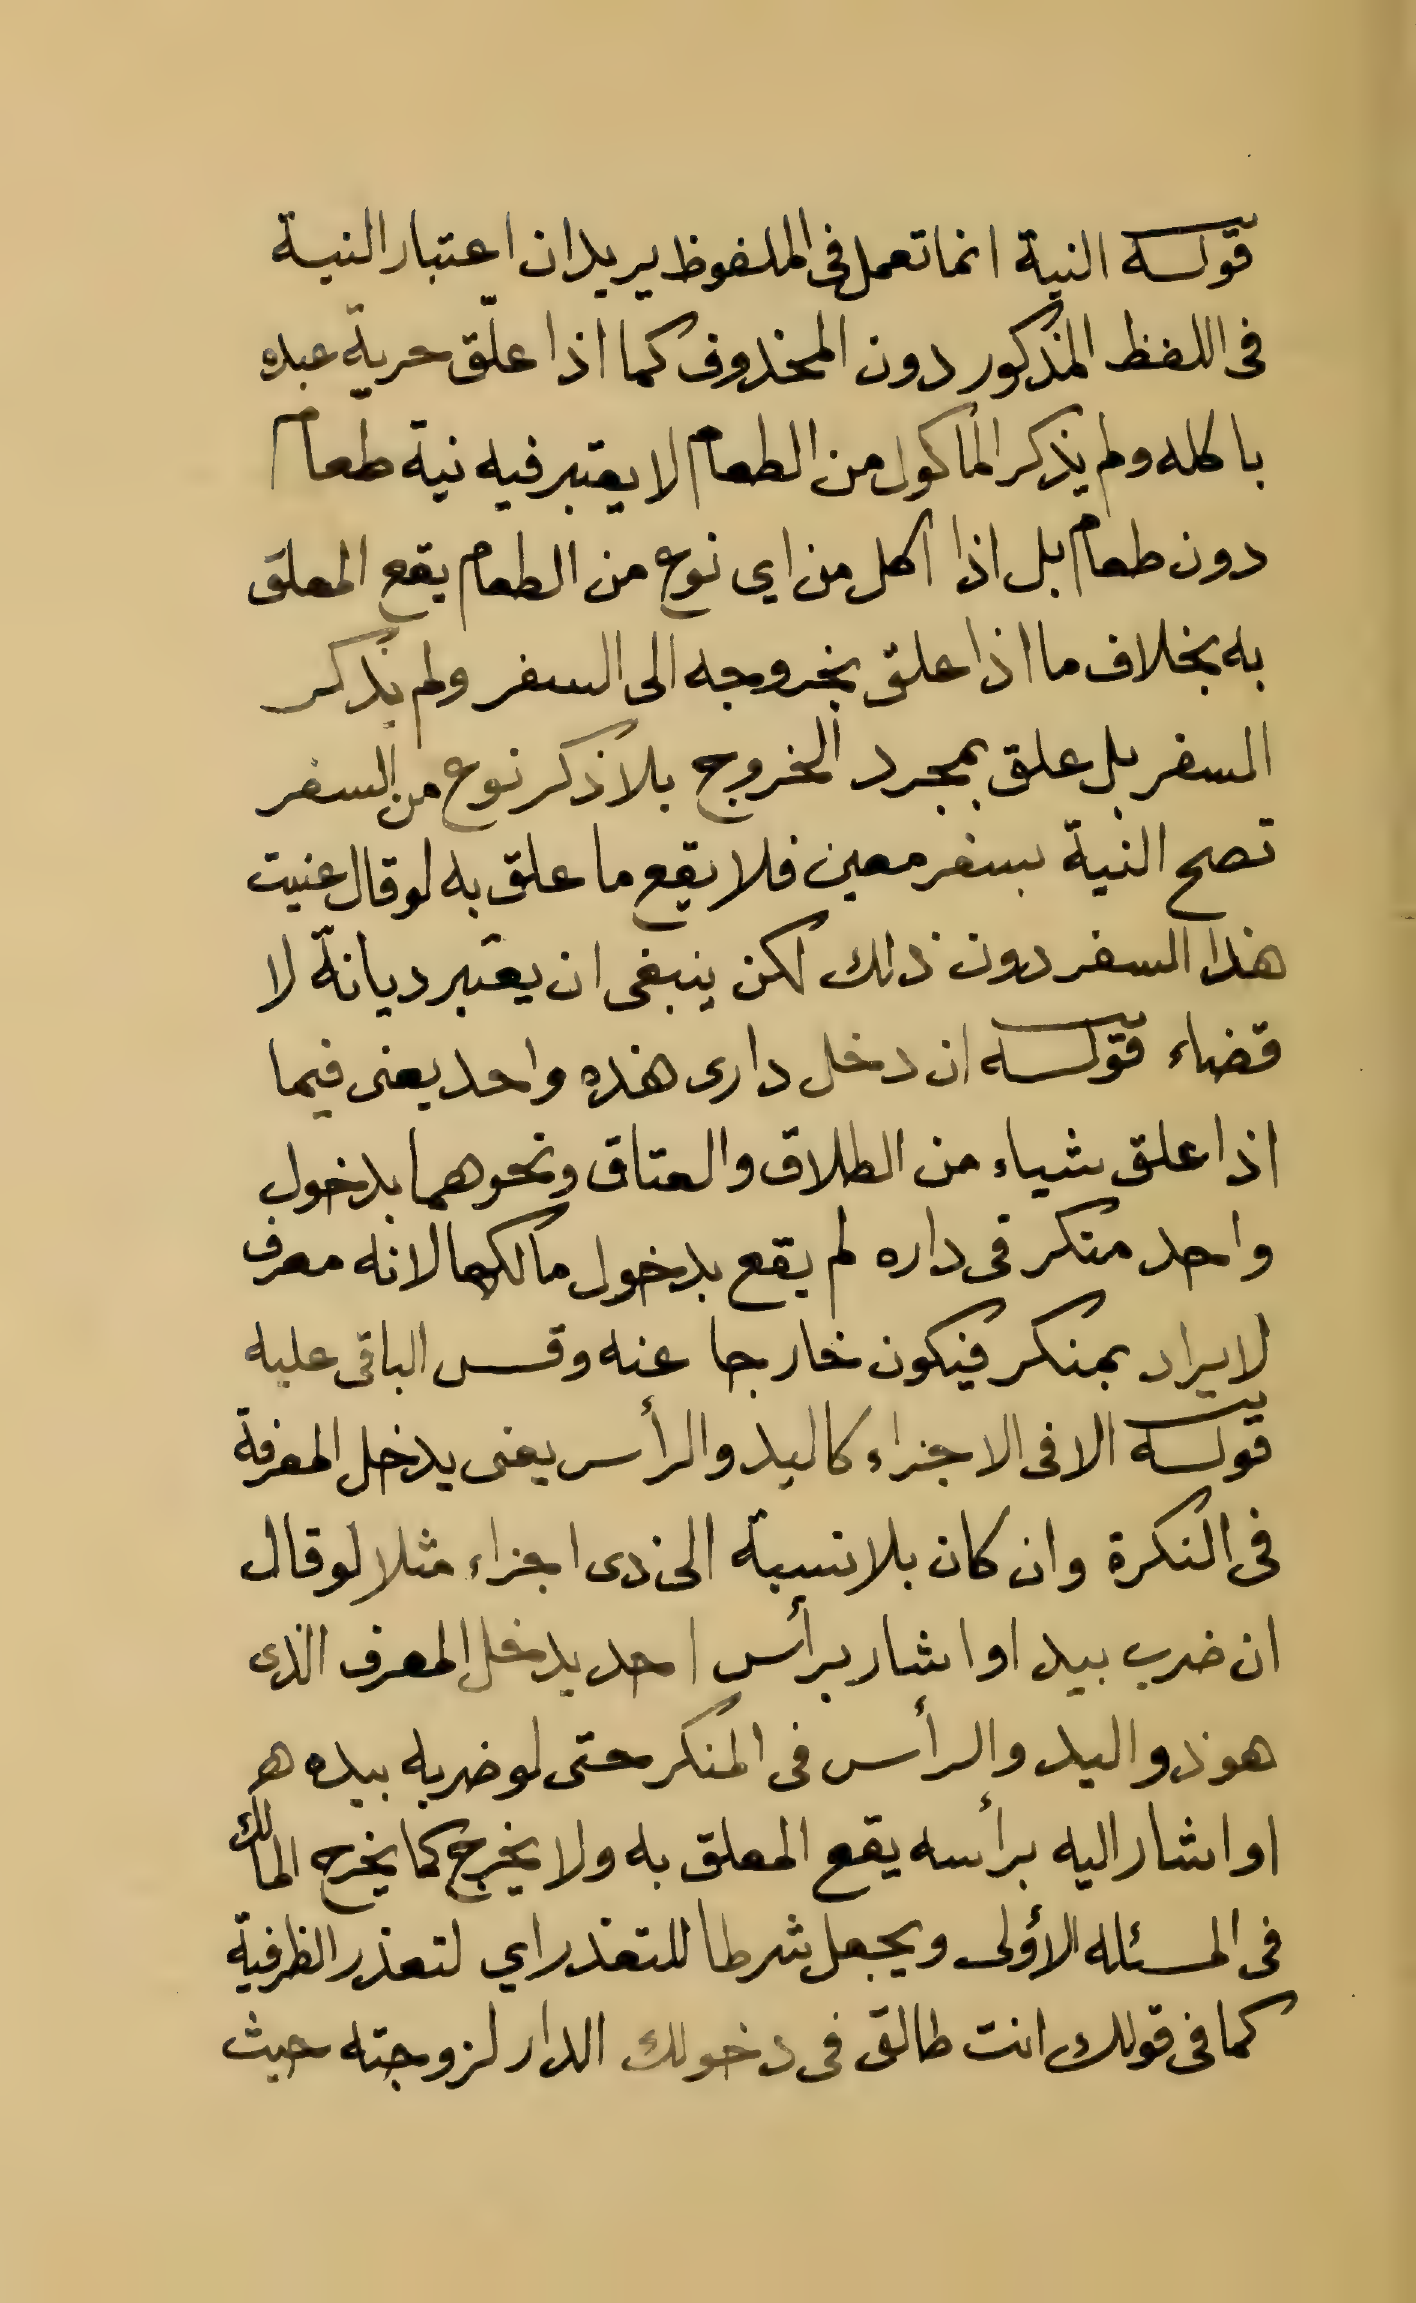 قوله النية انما تعمل فى الملفوظ يريد ان اعتبار النية
فى اللفظ المذكور دون المحذوف كما اذا علّق حرية عبده
باكله ولم يذكر المأكول من الطعام لا يعتبر فيه نية طعام
دون طعام بل اذا اكل من اى نوع من الطعام يقع المعلق
به بخلاف ما اذا علق بخروجه الى السفر ولم يذكر
السفر بل علق بمجرد الخروج بلا ذكر نوع من السفر
تصح النية بسفر معين فلا يقع ما علق به لو قال عنيت
هذا السفر دون ذلك لكن ينبغى ان يعتبر ديانة لا
قضاء قوله ان دخل دارى هذه واحد يعنى فيما
اذا علق شياء من الطلاق والعتاق ونحوهما بدخول
واحد منكر فى داره لم يقع بدخول مالكها لانه معرف
لا يراد بمنكر فيكون خارجا عنه وقس الباقى عليه
قوله الا فى الاجزاء كاليد والرأس يعنى يدخل المعرفة
فى النكرة وان كان بلا نسبة الى ذى اجزاء مثلا لو قال
ان ضرب بيد او اشار برأس احد يدخل المعرف الذى
هو ذو اليد والرأس فى المنكر حتى لو ضربه بيده هو
او اشار اليه برأسه يقع المعلق به ولا يخرج كما يخرج المالك
فى المسئله الأولى ويجعل شرطا للتعذر اي لتعذر الظرفية
كما فى قولك انت طالق فى دخولك الدار لزوجته حيث